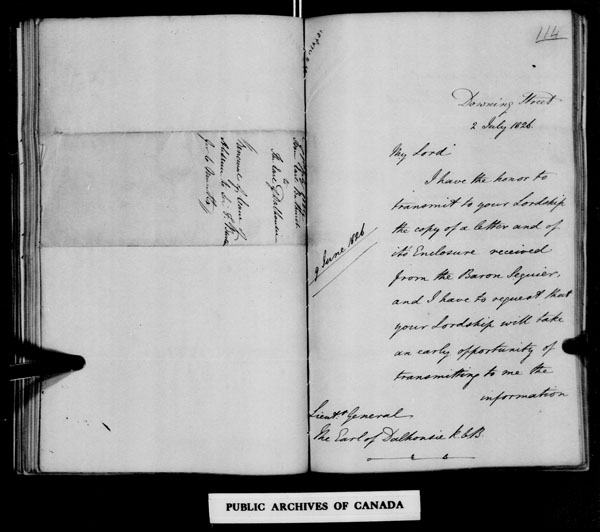 114
Downing Street
2 July 1826.
My Lord
I have the honor to
transmit to your Lordship
the copy of a letter and of
it's Enclosure received
from the Baron Seguier,
and I have to request that
your Lordship will take
an early opportunity of
transmitting to me the
information
9 June 1826
Lieutt General
The Earl of Dalhousie K.C.B.
The Earl of Dalhousie
Renewal of leave of
Absence to
for 6 Months
PUBLIC ARCHIVES OF CANADA